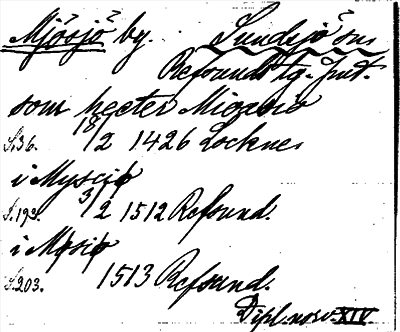 Mjösjö by. Sundsjö sn,
Refsunds tg. Jmt.
som heeter MigaBio
S.36. 18/2 1426 Lockne,
i Myscio
S.193. 3/2 1512 Refsund.
i Mosio
S.203. 1513 Refsund.
Dipl. norv. XIV.